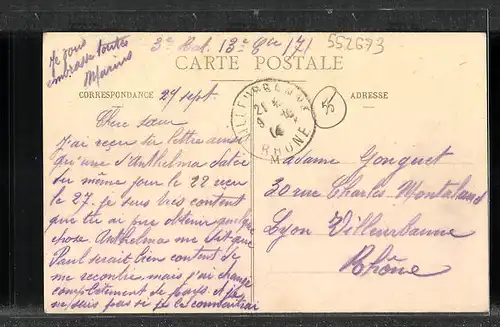 Je vous
embrasse toutes
Marius
3e Bat. 13e Cie 171
552673
CARTE POSTALE
CORRESPONDANCE
ADRESSE
27 sept.
Chère sœur
J'ai reçu ta lettre ainsi
qu'une d'Anthelma datée
du même jour le 22 reçu
le 27. Je suis très content
que tu ai pue obtenir quelque
chose. Anthelma me dit que
Paul srait bien content de
me recontré, mais j'ai changé
complètement de pays. Et je
ne sais pas si je le connaitrai
VILLEURBANNE
21
9
14
RHONE
Madame Gonguet
30 rue Charles Montaland
Lyon Villeurbanne
Rhône